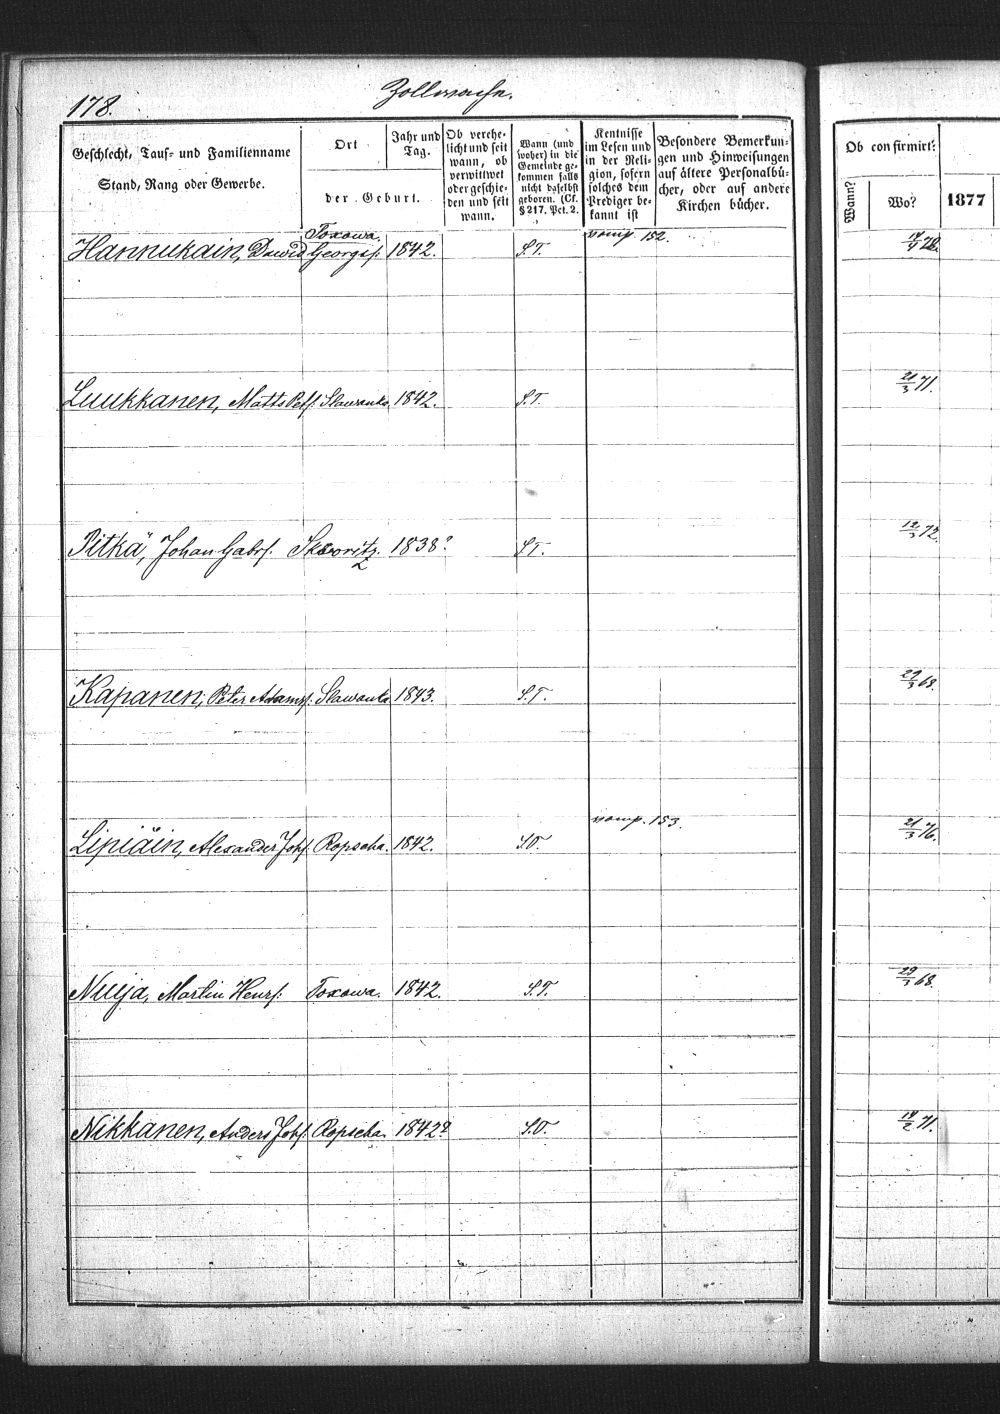 178.
Zollwache.
Geschlecht, Tauf- und Familienname
Stand, Rang oder Gewerbe.
Ort
Jahr und
Tag.
der Geburt.
Ob verehe-
licht und seit
wann, ob
verwittwet
oder geschie-
den und seit
wann.
Wann (und
woher) in die
Gemeinde ge-
kommen falls
nicht daselbst
geboren. (Cf.
§ 217. Pct. 2.
Kentnisse
im Lesen und
in der Reli-
gion, sofern
solches dem
Prediger be-
kannt ist
Besondere Bemerkun-
gen und Hinweisungen
auf ältere Personalbü-
cher, oder auf andere
Kirchen bücher.
Ob confirmirt?
Wann?
Wo?
1877
Toxowa. vomp. 152.
Hannukain, Dawid Georgsf. 1842. S.T.
Luukkanen, Matts Petf. Slawanka. 1842. S.T. 21/3 71.
Pitkä, Johan Gabrf. Skworitz. 1838? S.T. 12/3 72.
Kapanen, Peter Adamsf. Slawanka 1843. S.T. 29/3 68.
vomp. 153.
Lipiäin, Alexander Johf. Ropscha. 1842. S.O. 21/3 76.
Nuija, Martin Henrf. Toxowa. 1842. S.T. 29/3 68.
Nikkanen, Anders Johf. Ropscha. 1842? S.O. 18/2 71.